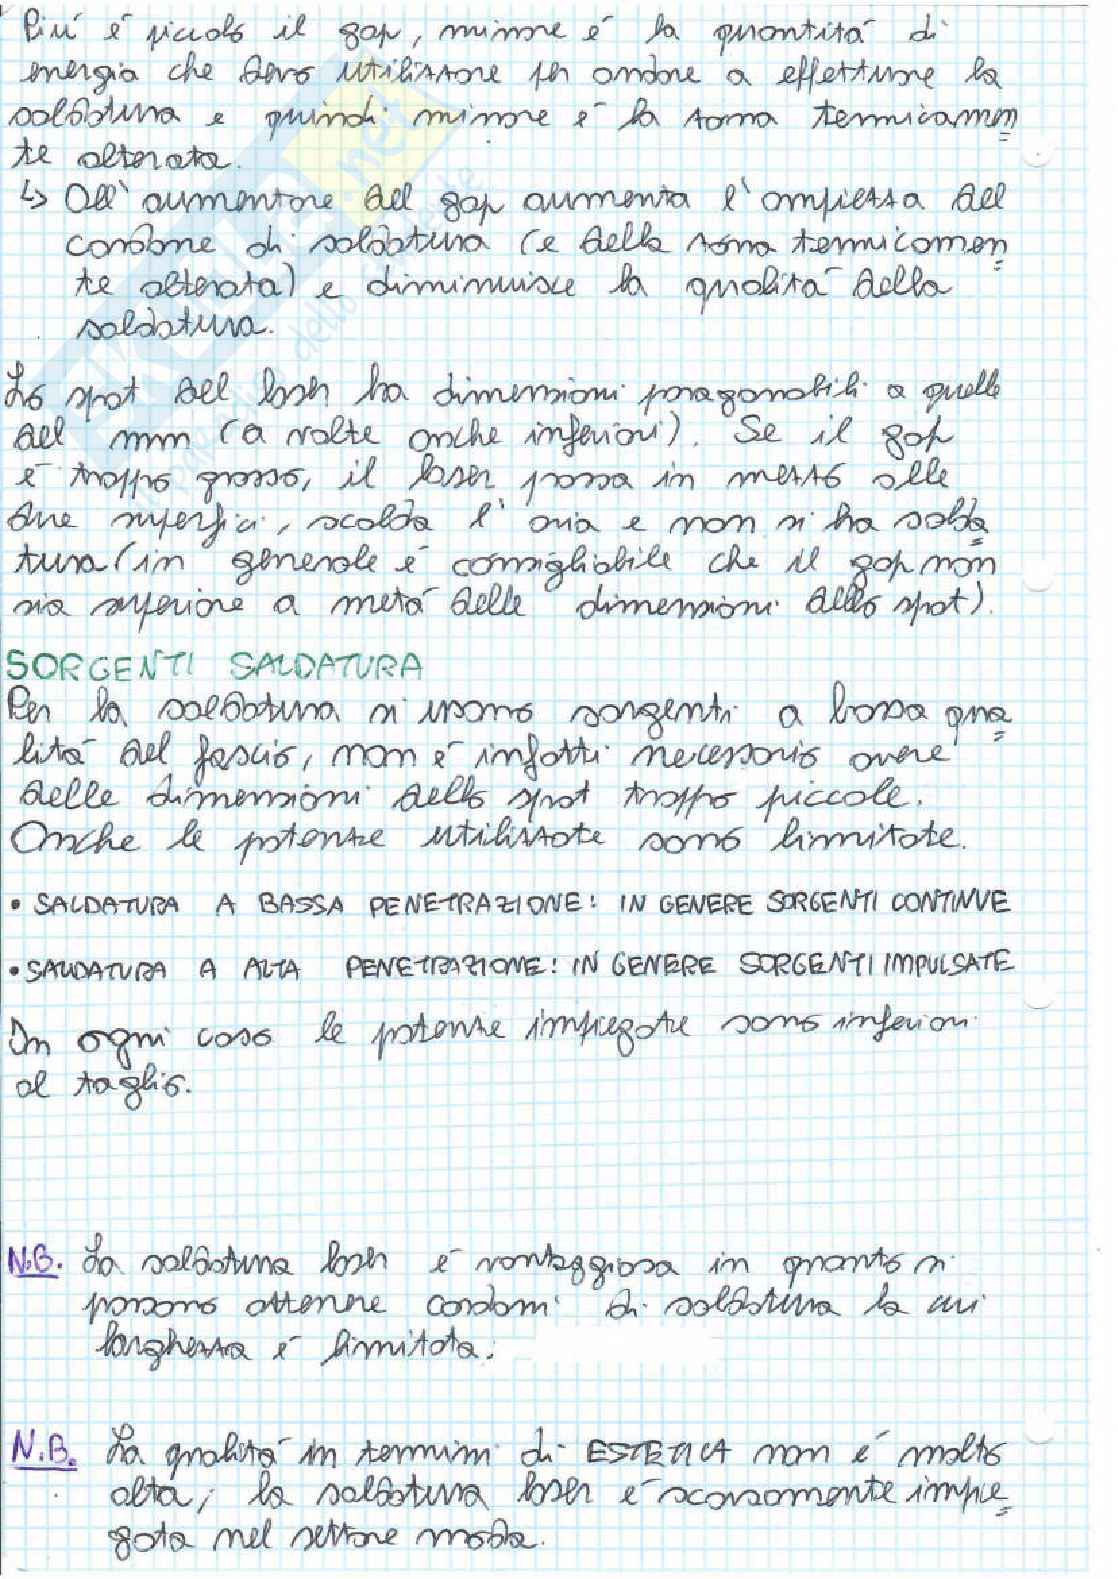 Più è piccolo il gap, minore è la quantità di
energia che devo utilizzare per andare a effettuare la
saldatura e quindi minore è la zona termicamen
te alterata.
↳ All'aumentare del gap aumenta l'ampiezza del
cordone di saldatura (e della zona termicamen
te alterata) e diminuisce la qualità della
saldatura.
Lo spot del laser ha dimensioni paragonabili a quelle
del mm (a volte anche inferiori). Se il gap
è troppo grosso, il laser passa in mezzo alle
due superfici, scalda l'aria e non si ha salda
tura (in generale è consigliabile che il gap non
sia superiore a metà delle dimensioni dello spot).
SORGENTI SALDATURA
Per la saldatura si usano sorgenti a bassa qua
lità del fascio, non è infatti necessario avere
delle dimensioni dello spot troppo piccole.
Anche le potenze utilizzate sono limitate.
• SALDATURA A BASSA PENETRAZIONE: IN GENERE SORGENTI CONTINUE
• SALDATURA A ALTA PENETRAZIONE: IN GENERE SORGENTI IMPULSATE
In ogni caso le potenze impiegate sono inferiori
al taglio.
N.B. La saldatura laser è vantaggiosa in quanto si
possono ottenere cordoni di saldatura la cui
larghezza è limitata.
N.B. La qualità in termini di ESTETICA non è molto
alta, la saldatura laser è scarsamente impie
gata nel settore moda.